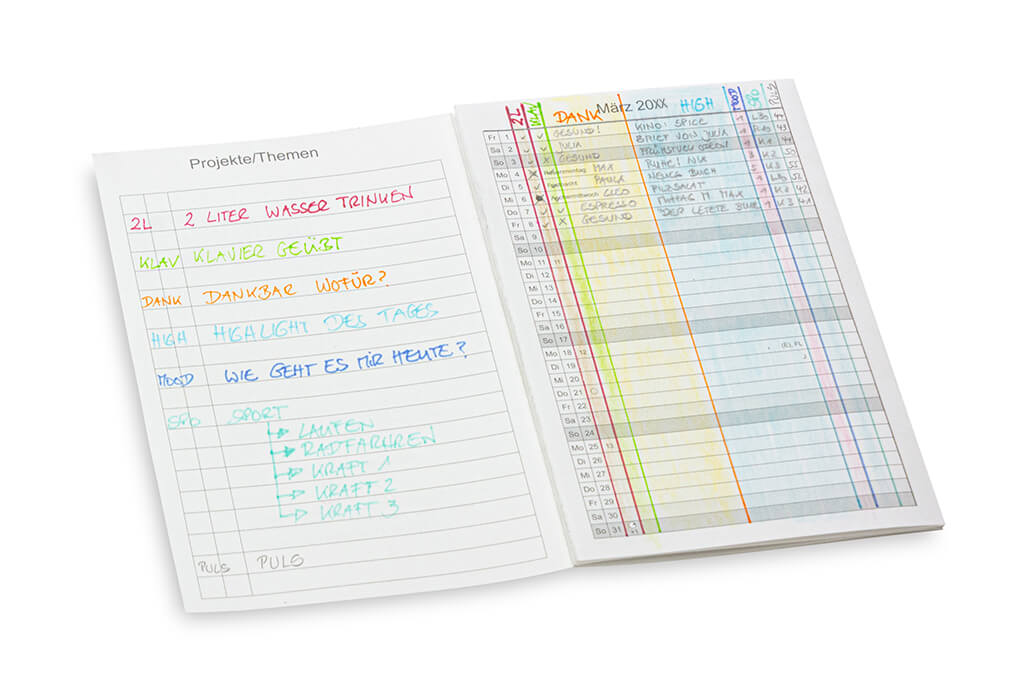 Projekte/Themen
2L 2 LITER WASSER TRINKEN
KLAV KLAVIER GEÜBT
DANK DANKBAR WOFÜR?
HIGH HIGHLIGHT DES TAGES
MOOD WIE GEHT ES MIR HEUTE?
SPO SPORT
LAUFEN
RADFAHREN
KRAFT 1
KRAFT 2
KRAFT 3
PULS PULS
März 20XX
2L KLAV DANK HIGH MOOD SPO PULS
Fr 1 GESUND! KINO: SPICE
Sa 2 JULIA BRIEF VON JULIA
So 3 GESUND
Mo 4 Rosenmontag MAX RUHE! NIX
Di 5 Fastnacht PAULA NEUES BUCH
Mi 6 Aschermittwoch CLEO
Do 7 ESPRESSO MITTAG M MAX
Fr 8 GESUND DER LETZTE
Sa 9
So 10
Mo 11 11
Di 12
Mi 13
Do 14
Fr 15
Sa 16
So 17
Mo 18 12
Di 19
Mi 20
Do 21
Fr 22
Sa 23
So 24
Mo 25 13
Di 26
Mi 27
Do 28
Fr 29
Sa 30
So 31